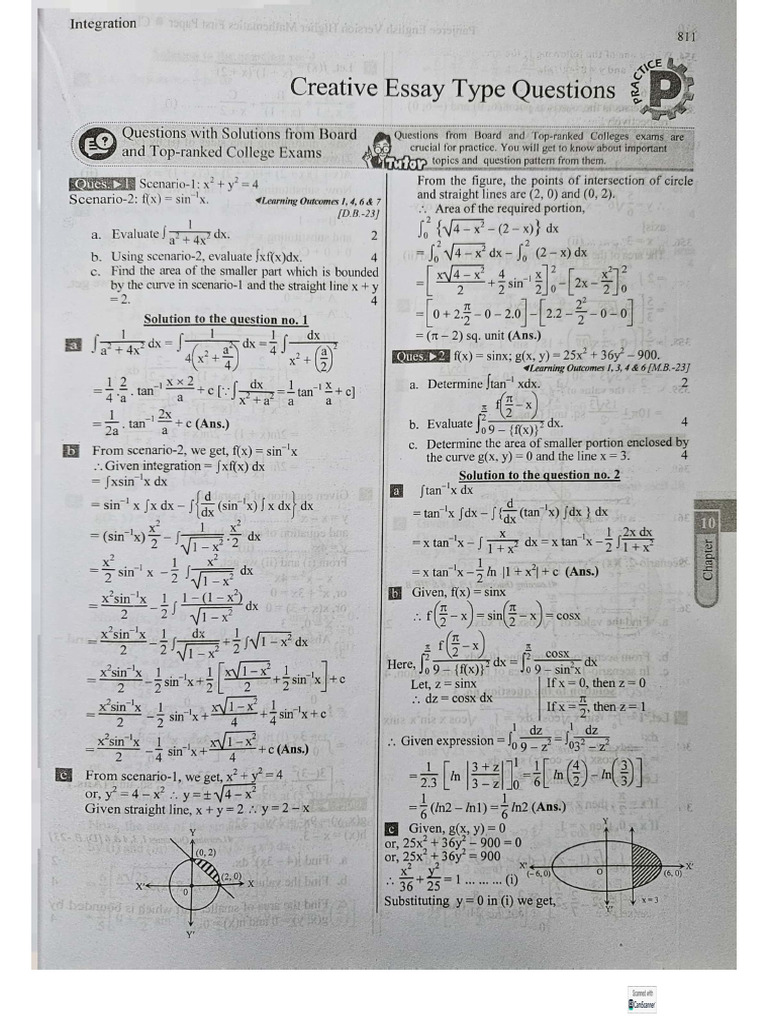 Integration
811
Creative Essay Type Questions
PRACTICE
P
Questions with Solutions from Board
and Top-ranked College Exams
Tutor
Questions from Board and Top-ranked Colleges exams are
crucial for practice. You will get to know about important
topics and question pattern from them.
Ques. ▶ 1 Scenario-1: x² + y² = 4
Scenario-2: f(x) = sin⁻¹x. ◄Learning Outcomes 1, 4, 6 & 7
[D.B.-23]
a. Evaluate ∫ 1/(a² + 4x²) dx. 2
b. Using scenario-2, evaluate ∫xf(x)dx. 4
c. Find the area of the smaller part which is bounded
by the curve in scenario-1 and the straight line x + y
= 2. 4
Solution to the question no. 1
a ∫ 1/(a² + 4x²) dx = ∫ 1/(4(x² + a²/4)) dx = 1/4 ∫ dx/(x² + (a/2)²)
= 1/4 . 2/a . tan⁻¹ (x × 2)/a + c [∵ ∫ dx/(x² + a²) = 1/a tan⁻¹ x/a + c]
= 1/2a . tan⁻¹ 2x/a + c (Ans.)
b From scenario-2, we get, f(x) = sin⁻¹x
∴ Given integration = ∫xf(x) dx
= ∫xsin⁻¹x dx
= sin⁻¹ x ∫x dx – ∫{d/dx (sin⁻¹x) ∫ x dx} dx
= (sin⁻¹x) x²/2 – ∫ 1/√(1 – x²) . x²/2 dx
= x²/2 sin⁻¹ x – 1/2 ∫ x²/√(1 – x²) dx
= x²sin⁻¹x/2 – 1/2 ∫ (1 – (1 – x²))/√(1 – x²) dx
= x²sin⁻¹x/2 – 1/2 ∫ dx/√(1 – x²) + 1/2 ∫√(1 – x²) dx
= x²sin⁻¹x/2 – 1/2 sin⁻¹x + 1/2 [x√(1 – x²)/2 + 1/2 sin⁻¹x] + c
= x²sin⁻¹x/2 – 1/2 sin⁻¹x + x√(1 – x²)/4 + 1/4 sin⁻¹x + c
= x²sin⁻¹x/2 – 1/4 sin⁻¹x + x√(1 – x²)/4 + c (Ans.)
c From scenario-1, we get, x² + y² = 4
or, y² = 4 – x² ∴ y = ± √(4 – x²)
Given straight line, x + y = 2 ∴ y = 2 – x
Y
(0, 2)
(2, 0)
X'
0
X
Y'
From the figure, the points of intersection of circle
and straight lines are (2, 0) and (0, 2).
∴ Area of the required portion,
∫₀² {√(4 – x²) – (2 – x)} dx
= ∫₀² √(4 – x²) dx – ∫₀² (2 – x) dx
= [x√(4 – x²)/2 + 4/2 sin⁻¹ x/2]₀² – [2x – x²/2]₀²
= [0 + 2.π/2 – 0 – 2.0] – [2.2 – 2²/2 – 0 – 0]
= (π – 2) sq. unit (Ans.)
Ques. ▶ 2 f(x) = sinx; g(x, y) = 25x² + 36y² – 900.
◄Learning Outcomes 1, 3, 4 & 6 [M.B.-23]
a. Determine ∫tan⁻¹ xdx. 2
b. Evaluate ∫₀^(π/2) f(π/2 – x)/(9 – {f(x)}²) dx. 4
c. Determine the area of smaller portion enclosed by
the curve g(x, y) = 0 and the line x = 3. 4
Solution to the question no. 2
a ∫tan⁻¹x dx
= tan⁻¹x ∫dx – ∫{d/dx (tan⁻¹x) ∫dx } dx
= x tan⁻¹x – ∫ x/(1 + x²) dx = x tan⁻¹x – 1/2 ∫ 2x dx/(1 + x²)
= x tan⁻¹x – 1/2 ln |1 + x²| + c (Ans.)
b Given, f(x) = sinx
∴ f(π/2 – x) = sin(π/2 – x) = cosx
Here, ∫₀^(π/2) f(π/2 – x)/(9 – {f(x)}²) dx = ∫₀^(π/2) cosx/(9 – sin²x) dx
Let, z = sinx | If x = 0, then z = 0
∴ dz = cosx dx | If x = π/2, then z = 1
∴ Given expression = ∫₀¹ dz/(9 – z²) = ∫₀¹ dz/(3² – z²)
= 1/2.3 [ln |(3 + z)/(3 – z)|]₀¹ = 1/6 [ln (4/2) – ln(3/3)]
= 1/6 (ln2 – ln1) = 1/6 ln2 (Ans.)
c Given, g(x, y) = 0
or, 25x² + 36y² – 900 = 0
or, 25x² + 36y² = 900
∴ x²/36 + y²/25 = 1 ......... (i)
Substituting y = 0 in (i) we get,
Y
X'
(–6, 0)
O
X'
(6, 0)
Y'
x = 3
10
Chapter
Scanned with
CamScanner